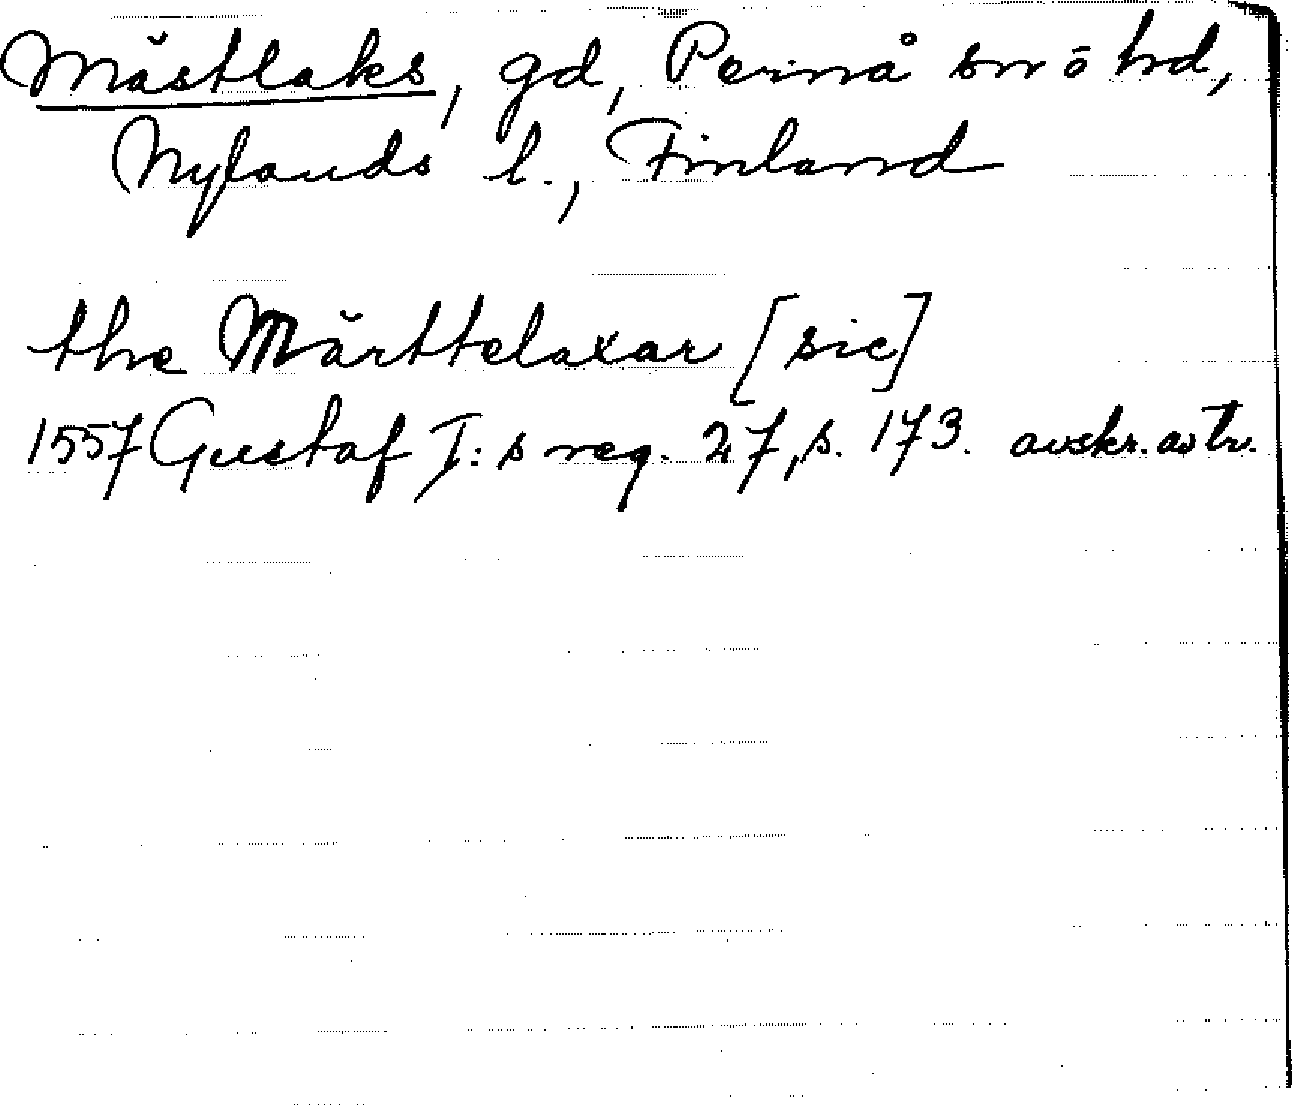 Mästlaks, gd, Pernå sn ō hd,
Nylands l., Finland
the Märttelaxar [sic]
1557 Gustaf I:s reg. 27, s. 173. avskr. av tr.